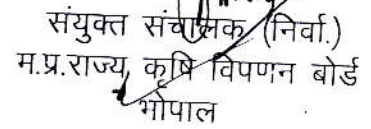 संयुक्त संचालक (निर्वा.)
म.प्र.राज्य कृषि विपणन बोर्ड
भोपाल